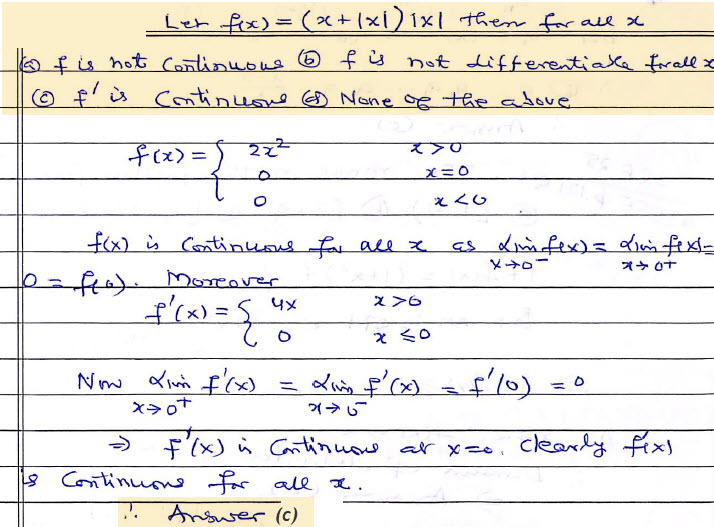 Let f(x) = (x + |x|) |x| then for all x
(a) f is not Continuous (b) f is not differentiable for all x
(c) f' is Continuous (d) None of the above
f(x) = { 2x² x > 0
0 x = 0
0 x < 0
f(x) is Continuous for all x as Lim x→0⁻ f(x) = Lim x→0+ f(x) =
0 = f(0). Moreover
f'(x) = { 4x x > 0
0 x ≤ 0
Now Lim x→0⁺ f'(x) = Lim x→0⁻ f'(x) = f'(0) = 0
⇒ f'(x) is Continuous at x=0. Clearly f'(x)
is Continuous for all x.
∴ Answer (c)